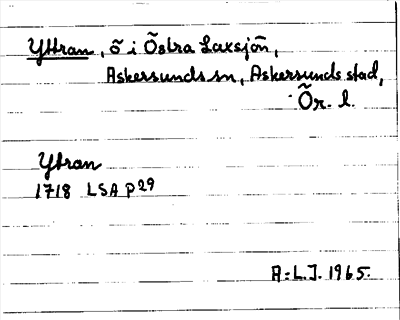 Yttran, ö i Östra Laxsjön,
Askersunds sn, Askersunds stad,
Ör. l.
Ytran
1718 LSA P29
A:L.J. 1965.